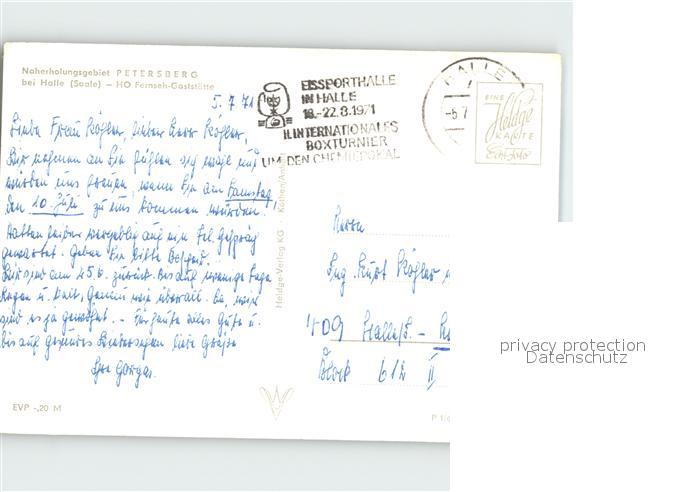 Naherholungsgebiet PETERSBERG
bei Halle (Saale) – HO Fernseh-Gaststätte
5. 7. 71
Liebe Frau Kögler, lieber Herr Kögler,
Wir nehmen an Sie fühlen sich wohl und
würden uns freuen, wenn Sie am Samstag,
den 10. Juli zu uns kommen würden.
Hatten leider vergeblich auf ein Tel. Gespräch
gewartet. Geben Sie bitte Bescheid.
Wir sind am 25.6. zurück. Bis auf wenige Tage
Regen u. kalt, überall. Na, wir
sind es ja gewohnt. – Für heute alles Gute u.
bis auf gesundes Wiedersehen liebe Grüße
Ihre
EVP -,20 M
EISSPORTHALLE
IN HALLE
18.-22.8.1971
II. INTERNATIONALES
BOXTURNIER
UM DEN CHEMIEPOKAL
HALLE
-5.7
EINE
Heldge
KARTE
Echt Foto
Heldge-Verlag KG · Köthen/Anh.
Herrn
Ing. Kurt Kögler
409 Halle/S. –
Block 612 II
P 1/6
privacy protection
Datenschutz